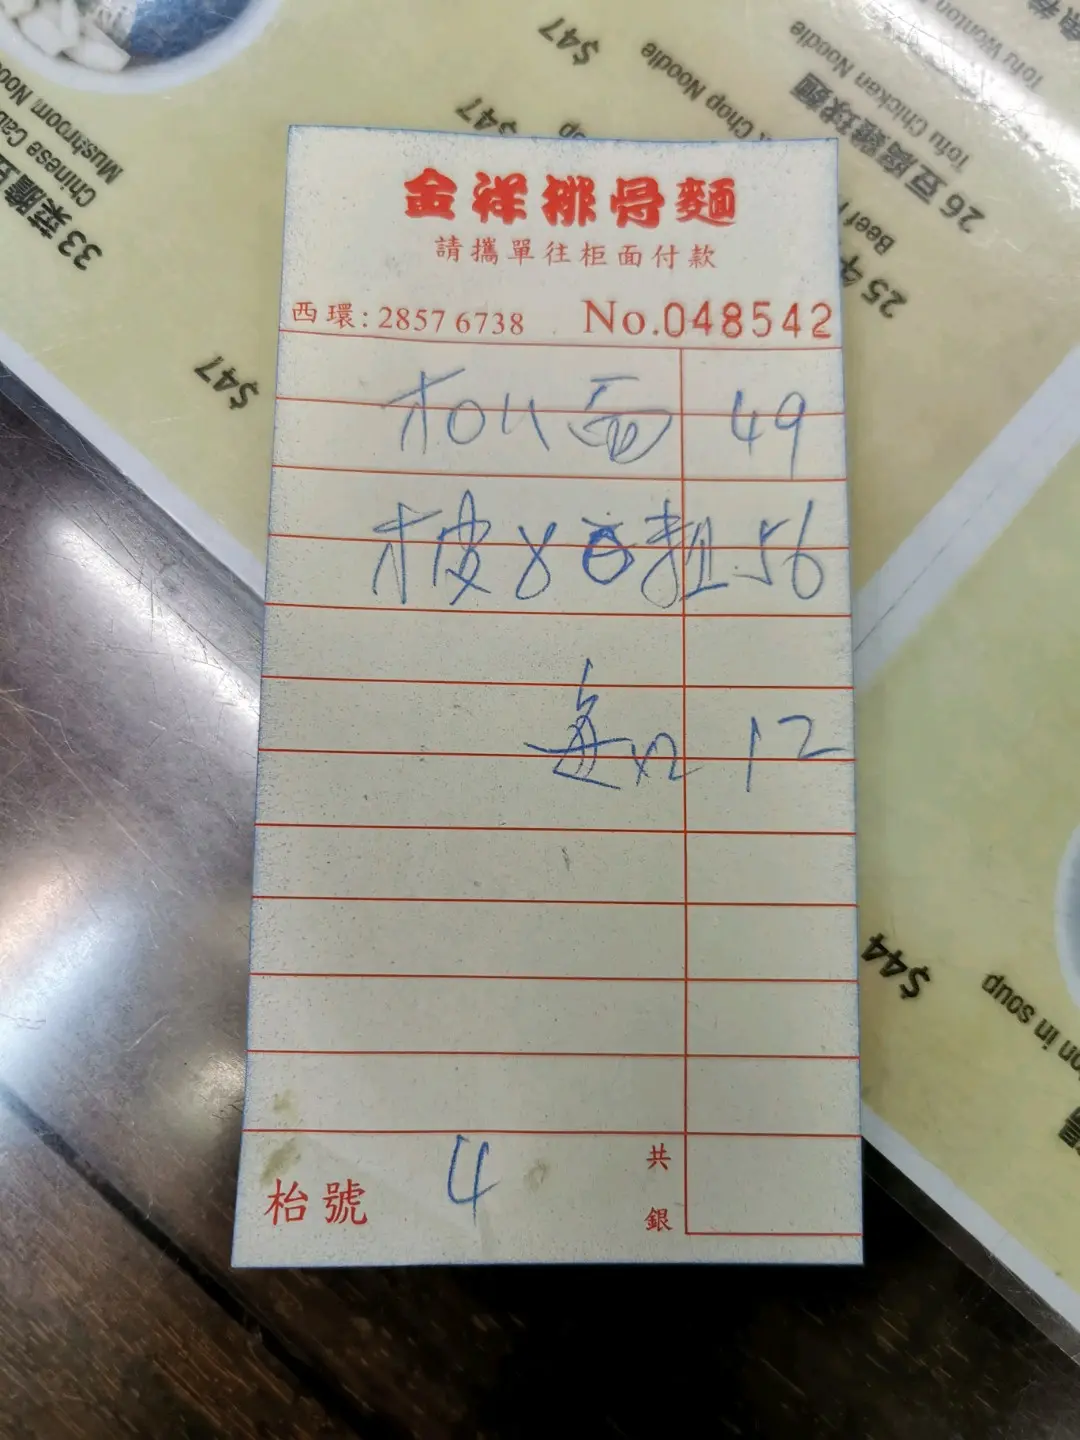 金祥排骨麵
請攜單往柜面付款
西環: 2857 6738 No.048542
49
56
12
枱號 4 共銀
$47
$47
$47
Chop Noodle
26 豆腐雞球麵
Tofu Chicken Noodle
Tofu Wonton
25 牛
Beef
33 菜膽
Chinese Cab
Mushroom Nood
$44
on in soup